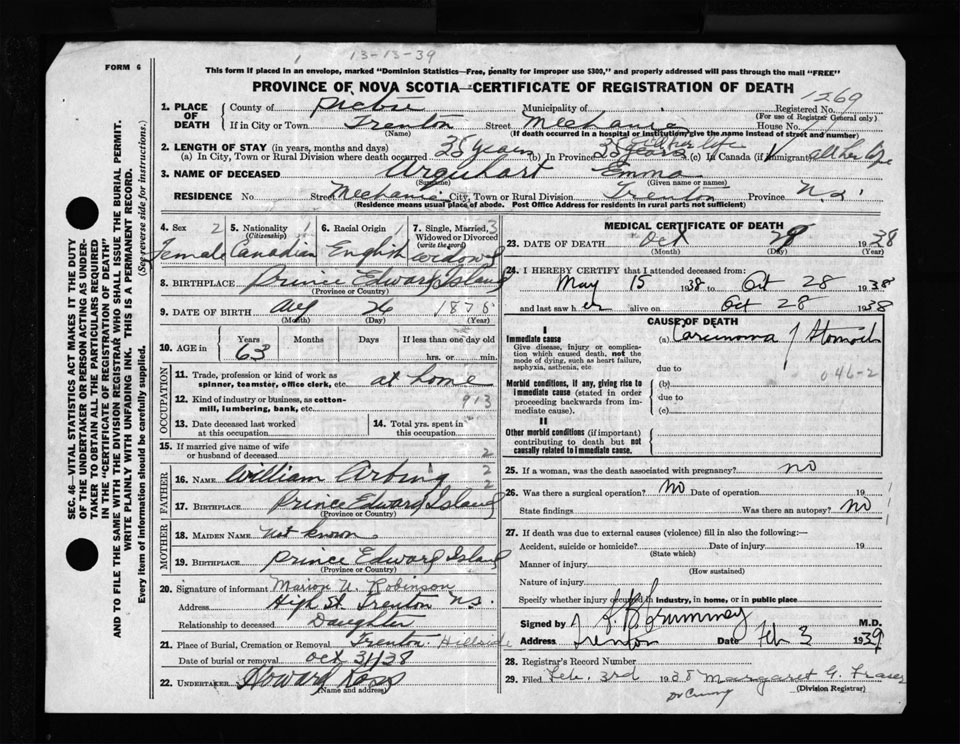 13-13-39
FORM 6
This form if placed in an envelope, marked "Dominion Statistics—Free, penalty for improper use $300," and properly addressed will pass through the mail "FREE"
PROVINCE OF NOVA SCOTIA—CERTIFICATE OF REGISTRATION OF DEATH
1269
1. PLACE OF DEATH
County of Pictou Municipality of Registered No.
(For use of Registrar General only)
If in City or Town Trenton Street Mechanic House No.
(Name) (If death occurred in a hospital or institution, give the name instead of street and number)
2. LENGTH OF STAY (in years, months and days)
(a) In City, Town or Rural Division where death occurred 35 years (b) In Province 35 years (c) In Canada (if immigrant) all her life
3. NAME OF DECEASED Urquhart Emma
(Surname) (Given name or names)
RESIDENCE No. Street Mechanic City, Town or Rural Division Trenton Province N.S.
(Residence means usual place of abode. Post Office Address for residents in rural parts not sufficient)
4. Sex 2 Female
5. Nationality (Citizenship) 1 Canadian
6. Racial Origin 1 English
7. Single, Married, Widowed or Divorced (write the word) 3 widow
8. BIRTHPLACE Prince Edward Island
(Province or Country)
9. DATE OF BIRTH Aug 26 1875
(Month) (Day) (Year)
10. AGE in Years 63 Months Days If less than one day old hrs. or min.
OCCUPATION
11. Trade, profession or kind of work as spinner, teamster, office clerk, etc. at home
12. Kind of industry or business, as cotton-mill, lumbering, bank, etc. 913
13. Date deceased last worked at this occupation
14. Total yrs. spent in this occupation
15. If married give name of wife or husband of deceased 2
FATHER
16. NAME William Arbing 2
17. BIRTHPLACE Prince Edward Island 2
(Province or Country)
MOTHER
18. MAIDEN NAME Not known
19. BIRTHPLACE Prince Edward Island
(Province or Country)
20. Signature of informant Marion U. Robinson
Address High St. Trenton N.S.
Relationship to deceased Daughter
21. Place of Burial, Cremation or Removal Trenton Hillside
Date of burial or removal Oct 31/38
22. UNDERTAKER Howard Ross
(Name and address)
MEDICAL CERTIFICATE OF DEATH
23. DATE OF DEATH Oct 28 1938
(Month) (Day) (Year)
24. I HEREBY CERTIFY that I attended deceased from:
May 15 1938 to Oct 28 1938
and last saw her alive on Oct 28 1938
CAUSE OF DEATH
I
Immediate cause (a) Carcinoma of Stomach
Give disease, injury or complication which caused death, not the mode of dying, such as heart failure, asphyxia, asthenia, etc
due to 046-2
Morbid conditions, if any, giving rise to immediate cause (stated in order proceeding backwards from immediate cause). (b)
due to
(c)
II
Other morbid conditions (if important) contributing to death but not causally related to immediate cause.
25. If a woman, was the death associated with pregnancy? no
26. Was there a surgical operation? No Date of operation 19
State findings Was there an autopsy? No
27. If death was due to external causes (violence) fill in also the following:—
Accident, suicide or homicide? Date of injury 19
(State which)
Manner of injury
(How sustained)
Nature of injury
Specify whether injury occurred in industry, in home, or in public place
Signed by M.D.
Address Trenton Date Feb 3 1939
28. Registrar's Record Number
29. Filed Feb. 3rd 1938 Margaret G. Fraser
(Division Registrar)
SEC. 46—VITAL STATISTICS ACT MAKES IT THE DUTY
OF THE UNDERTAKER OR PERSON ACTING AS UNDERTAKER TO OBTAIN ALL THE PARTICULARS REQUIRED
IN THE "CERTIFICATE OF REGISTRATION OF DEATH"
AND TO FILE THE SAME WITH THE DIVISION REGISTRAR WHO SHALL ISSUE THE BURIAL PERMIT.
WRITE PLAINLY WITH UNFADING INK. THIS IS A PERMANENT RECORD.
Every item of information should be carefully supplied. (See reverse side for instructions.)